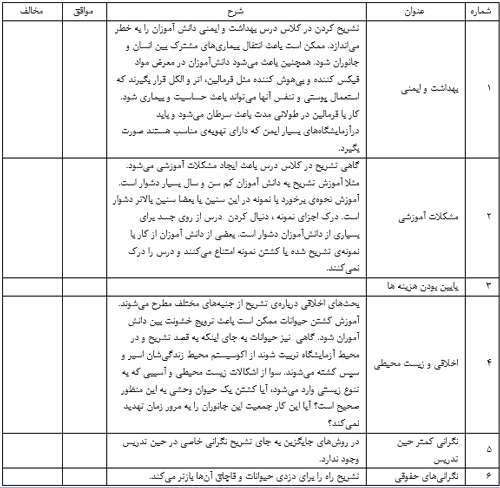 شماره	عنوان	شرح	موافق	مخالف
تشریح کردن در کلاس درس بهداشت و ایمنی دانش آموزان را به خطر
می‌اندازد. ممکن است باعث انتقال بیماری‌های مشترک بین انسان و
جانوران شود. همچنین باعث می‌شود دانش‌آموزان در معرض مواد
فیکس کننده و بی‌هوش کننده مثل فرمالین، اتر و الکل قرار بگیرند که
۱	بهداشت و ایمنی
استعمال پوستی و تنفس آنها می‌تواند باعث حساسیت و بیماری شود.
کار با فرمالین در طولانی مدت باعث سرطان می‌شود و باید
درآزمایشگاه‌های بسیار ایمن که دارای تهویه‌ی مناسب هستند صورت
بگیرد.
گاهی تشریح در کلاس درس باعث ایجاد مشکلات آموزشی می‌شود.
مثلا آموزش تشریح به دانش آموزان کم سن و سال بسیار دشوار است.
آموزش نحوه‌ی برخورد با نمونه در این سنین یا بعضا سنین بالاتر دشوار
۲	مشکلات آموزشی
است. درک اجزای نمونه ، دنبال کردن درس از روی جسد برای
بسیاری از دانش‌آموزان دشوار است. بعضی از دانش آموزان از کار با
نمونه‌ی تشریح شده یا کشتن نمونه امتناع می‌کنند و درس را درک
نمی‌کنند.
۳	پایین بودن هزینه ها
بحث‌های اخلاقی درباره‌ی تشریح از جنبه‌های مختلف مطرح می‌شوند.
آموزش کشتن حیوانات ممکن است باعث ترویج خشونت بین دانش
آموران شود. گاهی نیز حیوانات به جای اینکه به قصد تشریح و در
محیط آزمایشگاه تربیت شوند از اکوسیستم محیط زندگی‌شان اسیر و
۴	اخلاقی و زیست محیطی
سپس کشته می‌شوند. سوا از اشکالات زیست محیطی و آسیبی که به
تنوع زیستی وارد می‌شود، آیا کشتن یک حیوان وحشی به این منظور
صحیح است؟ آیا این کار جمعیت این جانوران را به مرور زمان تهدید
نمی‌کند؟
۵	نگرانی کمتر حین
تدریس
در روش‌های جایگزین به جای تشریح نگرانی خاصی در حین تدریس
وجود ندارد.
۶	نگرانی‌های حقوقی	تشریح راه را برای دزدی حیوانات و قاچاق آن‌ها بازتر می‌کند.